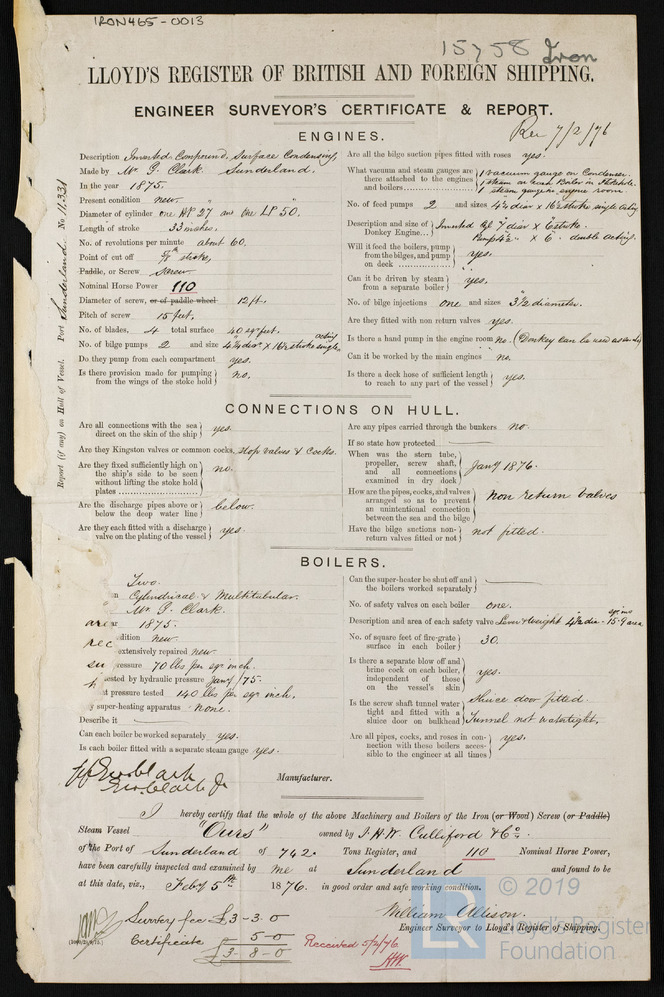 IRON465-0013
15758 Iron
LLOYD'S REGISTER OF BRITISH AND FOREIGN SHIPPING.
ENGINEER SURVEYOR'S CERTIFICATE & REPORT.
Rec 7/2/76
Report (if any) on Hull of Vessel. Port Sunderland. No. 11331
ENGINES.
Description Inverted Compound, Surface Condensing,
Made by Mr. G. Clark Sunderland.
In the year 1875.
Present condition new.
Diameter of cylinder one HP 27" and One LP 50."
Length of stroke 33 inches,
No. of revolutions per minute about 60.
Point of cut off stroke,
Paddle, or Screw Screw
Nominal Horse Power 110
Diameter of screw, or of paddle wheel 12 ft,
Pitch of screw 15 feet,
No. of blades, 4 total surface 40 sq. feet.
No. of bilge pumps 2 and size 4½ diar × 16½ stroke single acting
Do they pump from each compartment yes.
Is there provision made for pumping
from the wings of the stoke hold no,
Are all the bilge suction pipes fitted with roses yes.
What vacuum and steam gauges are
there attached to the engines
and boilers
1 vacuum gauge on Condenser.
1 steam on each Boiler in Stokehole.
1 steam gauge in engine room
No. of feed pumps 2 and sizes 4½ diar × 16½ stroke single acting
Description and size of
Donkey Engine
Inverted 7" diar × 6" stroke.
Pump 4½" × 6". double acting.
Will it feed the boilers, pump
from the bilges, and pump
on deck yes.
Can it be driven by steam
from a separate boiler yes,
No. of bilge injections one and sizes 3½ diameter.
Are they fitted with non return valves yes.
Is there a hand pump in the engine room no. (Donkey can be used as such)
Can it be worked by the main engines no.
Is there a deck hose of sufficient length
to reach to any part of the vessel yes.
CONNECTIONS ON HULL.
Are all connections with the sea
direct on the skin of the ship yes.
Are they Kingston valves or common cocks, stop valves & Cocks.
Are they fixed sufficiently high on
the ship's side to be seen
without lifting the stoke hold
plates no.
Are the discharge pipes above or
below the deep water line below.
Are they each fitted with a discharge
valve on the plating of the vessel yes.
Are any pipes carried through the bunkers no.
If so state how protected
When was the stern tube,
propeller, screw shaft,
and all connections
examined in dry dock Jany 1876.
How are the pipes, cocks, and valves
arranged so as to prevent
an unintentional connection
between the sea and the bilge non return valves
Have the bilge suctions non-
return valves fitted or not not fitted.
BOILERS.
Two.
n Cylindrical & Multitubular.
Mr. G. Clark.
ar 1875.
dition new.
extensively repaired new.
ressure 70 lbs per sqr inch.
tested by hydraulic pressure Jany /75.
at pressure tested 140 lbs per sqr inch.
y super-heating apparatus none.
Describe it
Can each boiler be worked separately yes.
Is each boiler fitted with a separate steam gauge yes.
are
rec
su
h
Can the super-heater be shut off and
the boilers worked separately
No. of safety valves on each boiler one.
Description and area of each safety valve Lever & weight 4½ dia. 15.9 area sqr ins
No. of square feet of fire-grate
surface in each boiler 30.
Is there a separate blow off and
brine cock on each boiler,
independent of those
on the vessel's skin yes.
Is the screw shaft tunnel water
tight and fitted with a
sluice door on bulkhead
Sluice door fitted.
Tunnel not watertight.
Are all pipes, cocks, and roses in con-
nection with these boilers acces-
sible to the engineer at all times yes.
Geo Clark Jr Manufacturer.
I hereby certify that the whole of the above Machinery and Boilers of the Iron (or Wood) Screw (or Paddle)
Steam Vessel "Ours" owned by J. H. W. Culliford & Co.
of the Port of Sunderland of 742. Tons Register, and 110 Nominal Horse Power,
have been carefully inspected and examined by me at Sunderland and found to be
at this date, viz., Feby 5th 1876. in good order and safe working condition.
William Allison.
Engineer Surveyor to Lloyd's Register of Shipping.
Survey fee £3-3.0
Certificate 5-0
£3-8-0
Received 5/2/76
© 2019
LR
Lloyd's Register
Foundation